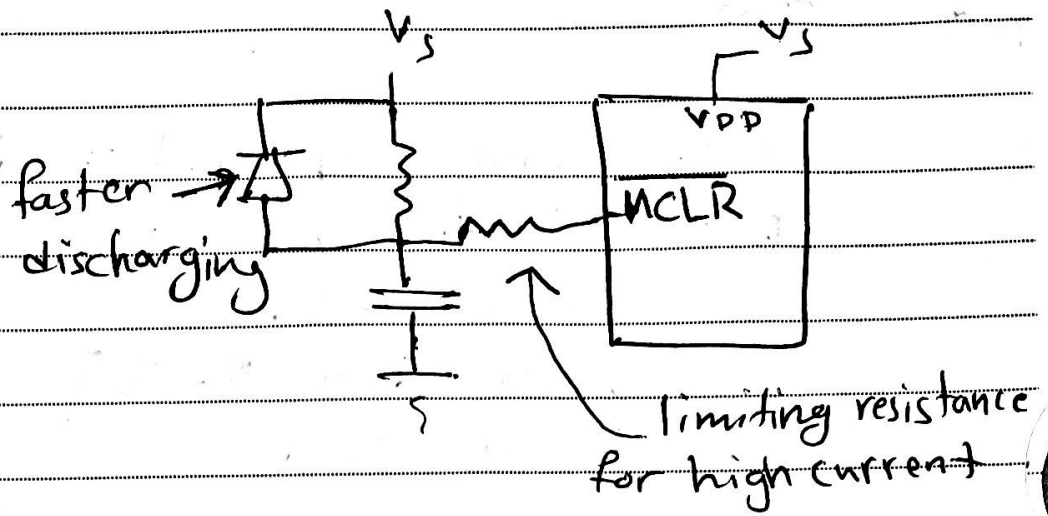 Vs
Vs
VDD
MCLR
faster
discharging
limiting resistance
for high current